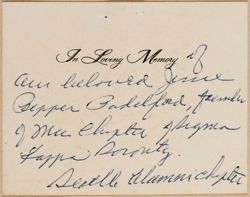 In Loving Memory of
our beloved Jessie
Pepper Padelford, founder
of Mu Chapter of Sigma
Kappa Sorority.
Seattle Alumni Chapter